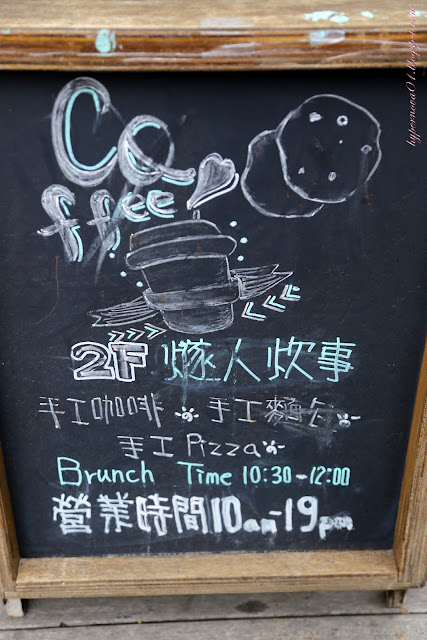 Co
ffee
2F 燧人炊事
手工咖啡 手工麵包
手工Pizza
Brunch Time 10:30-12:00
營業時間10am-19pm
hypernova01.blogspot.com